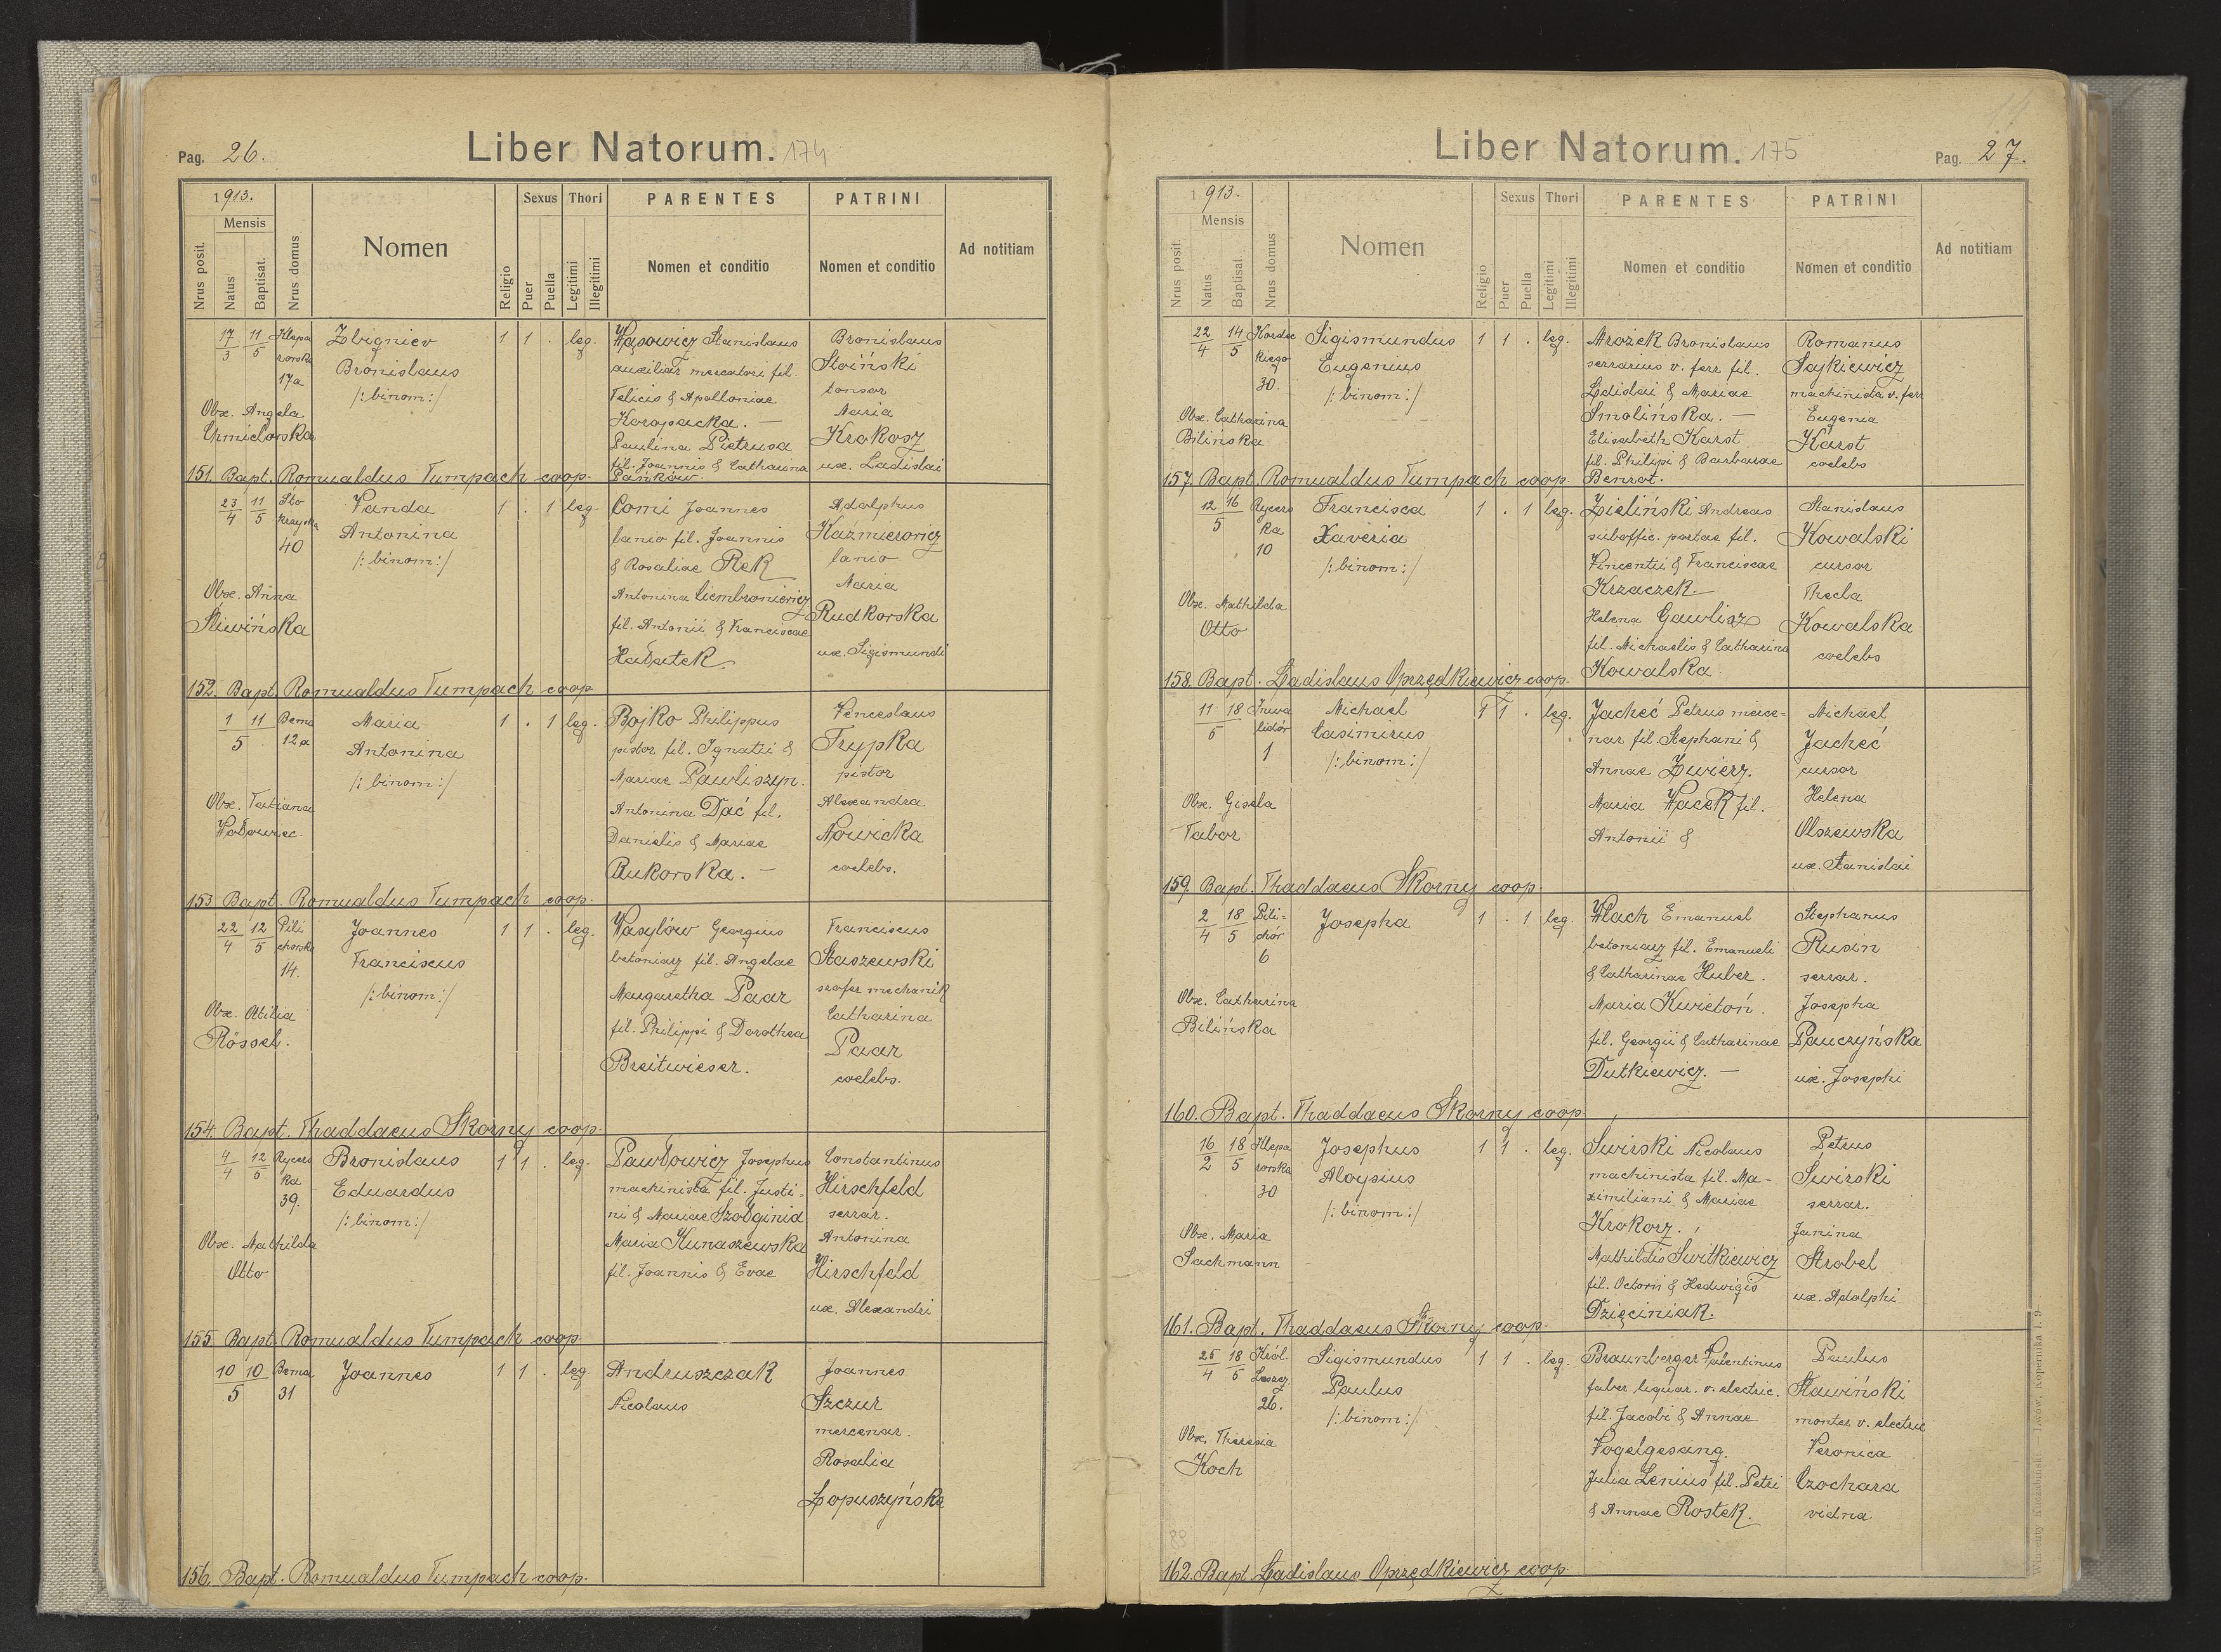 Pag. 26.
Liber Natorum. 174
1913.
Mensis
Nrus posit.
Natus
Baptisat.
Nrus domus
Nomen
Religio
Sexus
Puer
Puella
Thori
Legitimi
Illegitimi
PARENTES
Nomen et conditio
PATRINI
Nomen et conditio
Ad notitiam
17/3 11/5 Klepa
rowska
17a
Zbigniev
Bronislaus
/: binom:/
1 1 . leg.
Wąsowicz Stanislaus
auxiliar mercatori fil.
Felicis & Apolloniae
Koropacka. —
Paulina Pietrusa
fil. Joannis & Catharina
Pańków.
Bronislaus
Stoiński
tonsor
Maria
Krokosz
ux. Ladislai
Obx. Angela
151. Bapt. Romualdus Tumpach coop.
23/4 11/5
40
Vanda
Antonina
/: binom:/
1 . 1 leg.
Comi Joannes
lanio fil. Joannis
& Rosaliae Rek
Antonina Ciembroniewicz
fil. Antonii & Franciscae
Hałatek
Adolphus
Kaźmierowicz
lanio
Maria
Rudkorska
ux. Sigismundi
Obx. Anna
Śliwińska
152. Bapt. Romualdus Tumpach coop
1 11/5 Bema
12a
Maria
Antonina
/: binom:/
1 . 1 leg.
Bojko Philippus
pistor fil. Ignatii &
Mariae Pawliszyn.
Antonina Dać fil.
Danielis & Mariae
Bukorska. —
Venceslaus
Trypka
pistor
Alexandra
Nowicka
coelebs.
Obx. Tatiana
Wołowiec.
153 Bapt. Romualdus Tumpach coop.
22/4 12/5 Pili
chowska
14.
Joannes
Franciscus
/: binom:/
1 1 . leg.
Wasylów Georgius
betoniarz fil. Angelae
Margaretha Paar
fil. Philippi & Dorothea
Breitwieser.
Franciscus
Staszewski
szofer mechanik
Catharina
Paar
coelebs.
Obx. Otilia
Rössel.
154. Bapt. Thaddaeus Skorny coop.
4/4 12/5 Rycers
ka
39.
Bronislaus
Eduardus
/: binom:/
1 1 . leg.
Pawłowicz Josephus
machinista fil. Justi-
ni & Mariae Szołginia
Maria Kunaszewska
fil. Joannis & Evae
Constantinus
Hirschfeld
serrar.
Antonina
Hirschfeld
ux. Alexandri
Obx. Mathilda
Otto
155. Bapt. Romualdus Tumpach coop.
10 10/5 Bema
31
Joannes
1 1 . leg.
Andruszczak
Nicolaus
Joannes
Szczur
mercenar.
Rosalia
Łopuszyńska
156. Bapt. Romualdus Tumpach coop.
Liber Natorum. 175
Pag. 27.
1913.
Mensis
Nrus posit.
Natus
Baptisat.
Nrus domus
Nomen
Religio
Sexus
Puer
Puella
Thori
Legitimi
Illegitimi
PARENTES
Nomen et conditio
PATRINI
Nomen et conditio
Ad notitiam
22/4 14/5 Kordec
kiego
30.
Sigismundus
Eugenius
/: binom:/
1 1 . leg.
Mrożek Bronislaus
serrarius v. ferr fil.
Ladislai & Mariae
Smolińska. —
Elisabeth Karst
fil. Philipi & Barbarae
Benrot.
Romanus
Sajkiewicz
machinista v. ferr
Eugenia
Karst
coelebs
Obx. Catharina
Bilińska
157. Bapt. Romualdus Tumpach coop.
12 16/5 Rycers
ka
10
Francisca
Xaveria
/: binom:/
1 . 1 leg.
Zieliński Andreas
suboffic. portae fil.
Vincentii & Franciscae
Krzaczek
Helena Gawlisz
fil. Michaelis & Catharina
Kowalska.
Stanislaus
Kowalski
cursor
Thecla
Kowalska
coelebs
Obx. Mathilda
Otto
158. Bapt. Ladislaus Oprzędkiewicz coop.
11 18/5 Inwa
lidów
1
Michael
Casimirus
/: binom:/
1 1 . leg.
Jacheć Petrus merce-
nar fil. Stephani &
Annae Zwierz.
Maria Wacek fil.
Antonii &
Michael
Jacheć
cursor
Helena
Olszewska
ux. Stanislai
Obx. Gisela
Tabor
159. Bapt. Thaddaeus Skorny coop.
2/4 18/5 Pili-
chów
6
Josepha
1 . 1 leg.
Wlach Emanuel
betoniarz fil. Emanueli
& Catharinae Huber.
Maria Kwietoń.
fil. Georgii & Catharinae
Dutkiewicz. —
Stephanus
Rusin
serrar.
Josepha
Pauczyńska
ux. Josephi
Obx. Catharina
Bilińska
160. Bapt. Thaddaeus Skorny coop.
16/2 18/5 Klepa
rowska
30
Josephus
Aloysius
/: binom:/
1 1 . leg.
Świrski Nicolaus
machinista fil. Ma-
ximiliani & Mariae
Krokosz.
Mathildis Świtkiewicz
fil. Octavii & Hedwigis
Dzięciniak.
Petrus
Świrski
serrar.
Janina
Strobel
ux. Adolphi
Obx. Maria
Sachmann
161. Bapt. Thaddaeus Skorny coop.
25/4 18/5 Król.
Leszcz.
26.
Sigismundus
Paulus
/: binom:/
1 1 . leg.
Braunberger Valentinus
faber liquar. v. electric.
fil. Jacobi & Annae
Vogelgesang.
Julia Lenius fil. Petri
& Annae Rostek.
Paulus
Sławiński
monter v. electric
Veronica
Czochara
vidua
Obx. Theresia
Koch
162. Bapt Ladislaus Oprzędkiewicz coop.